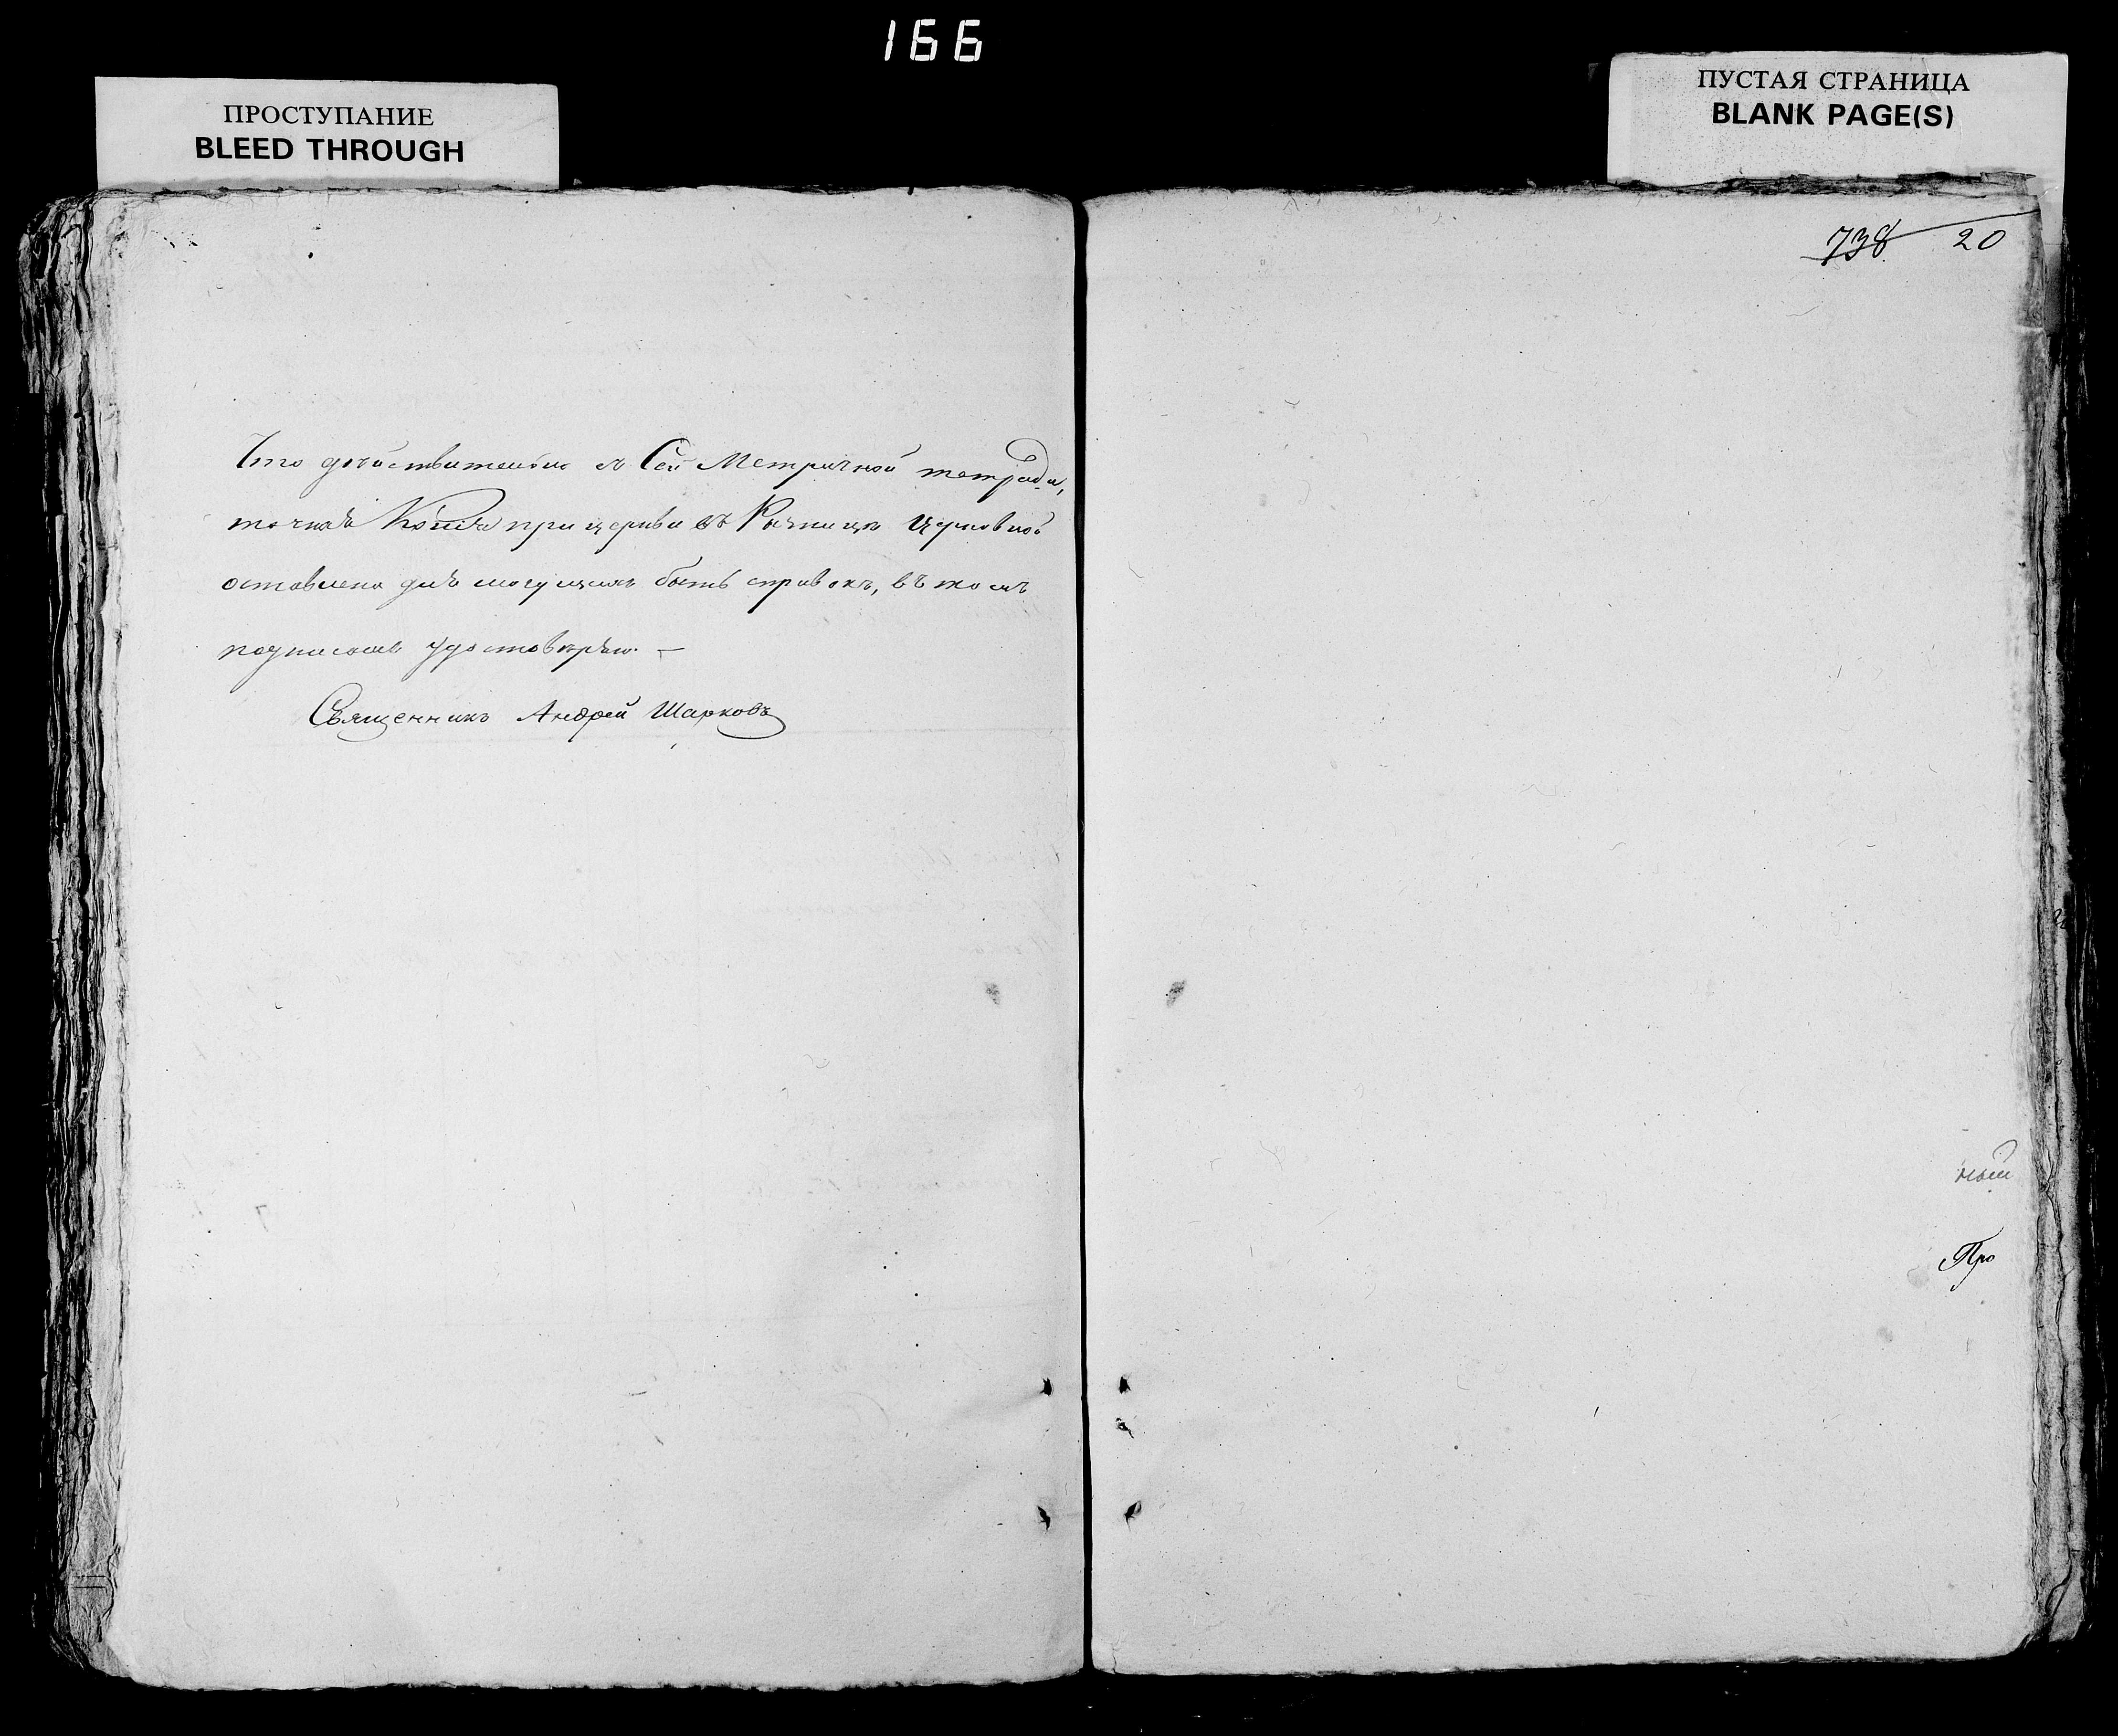 166
ПРОСТУПАНИЕ
BLEED THROUGH
ПУСТАЯ СТРАНИЦА
BLANK PAGE(S)
738 20
Что дѣйствительно съ Сей Метричной тетради,
точная Копія при церкви въ Ризницѣ Церковной
оставлена для могущихъ быть справокъ, въ томъ
подписомъ удостовѣряю. —
Священникъ Андрей Шарковъ
ный
Про